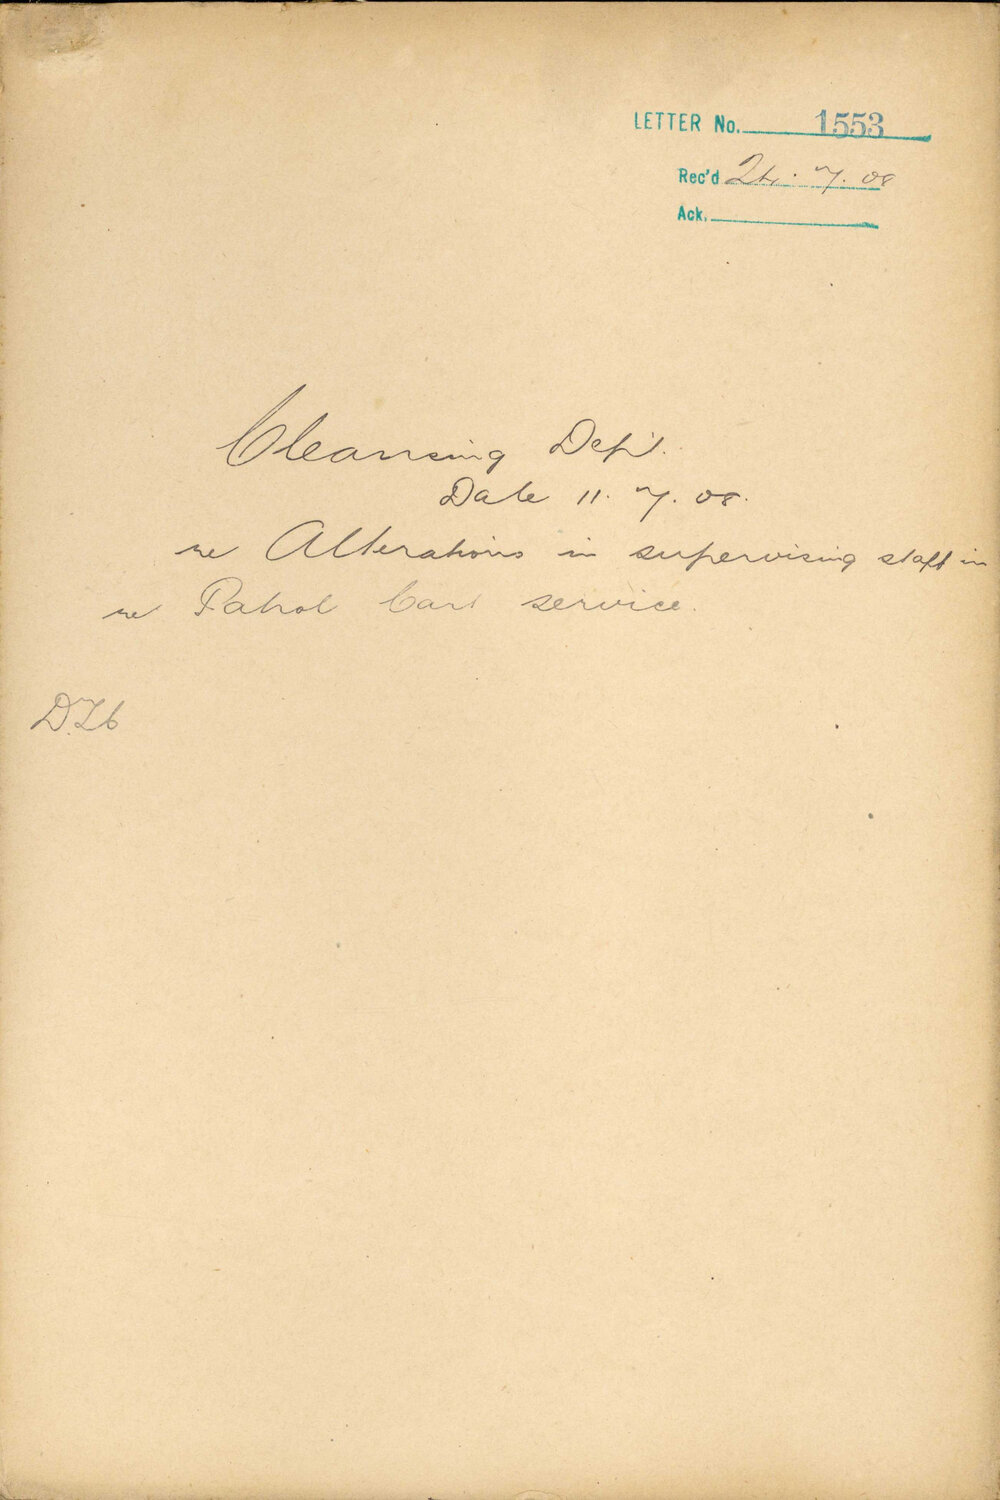 LETTER No. 1553
Rec'd 24. 7. 08
Ack.
Cleansing Dep't.
Date 11. 7. 08.
re Alterations in supervising staff in
re Patrol Cart service.